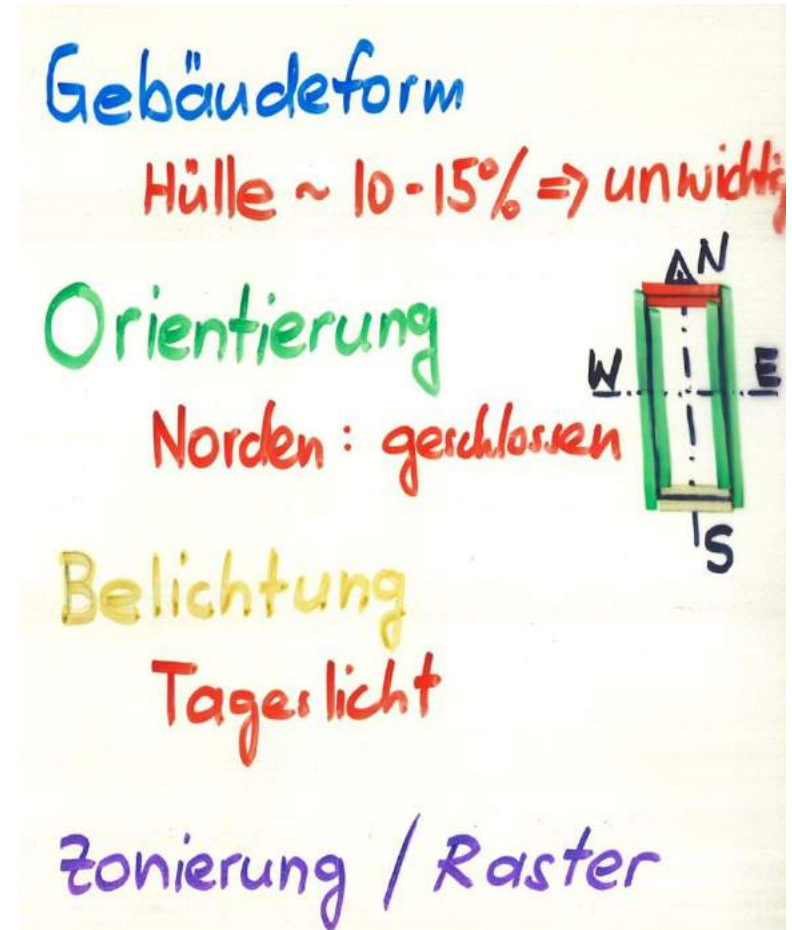 Gebäudeform
Hülle ~ 10-15% => unwichtig
Orientierung
N
W
E
Norden: geschlossen
S
Belichtung
Tageslicht
Zonierung / Raster